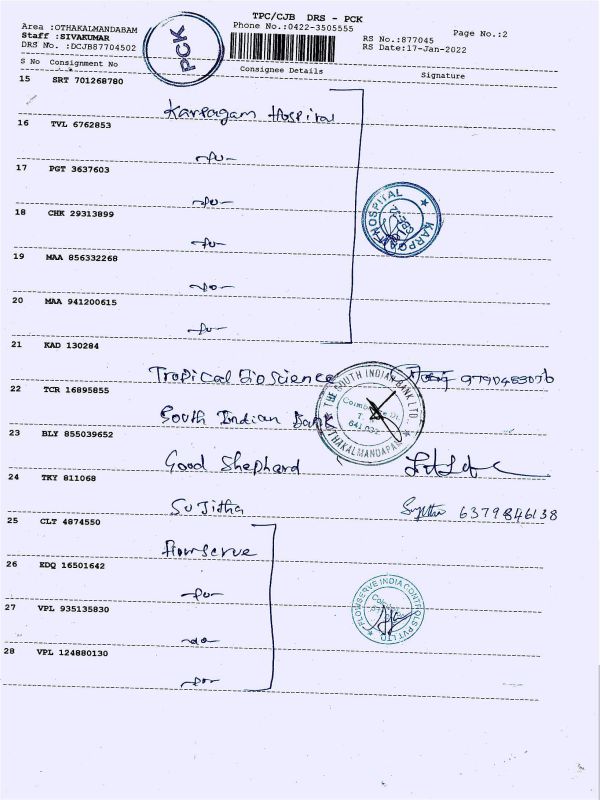 TPC/CJB DRS - PCK
Area :OTHAKALMANDABAM
Phone No.:0422-3505555
Page No.:2
Staff :SIVAKUMAR
RS No.:877045
DRS No. :DCJB87704502
RS Date:17-Jan-2022
PCK
S No Consignment No Consignee Details Signature
15 SRT 701268780
Karpagam Hospital
16 TVL 6762853
-do-
17 PGT 3637603
-do-
18 CHK 29313899
-do-
KARPAGAM HOSPITAL
19 MAA 856332268
-do-
20 MAA 941200615
-do-
21 KAD 130284
Tropical Bioscience
22 TCR 16895855
South Indian Bank
THE SOUTH INDIAN BANK LTD.
Coimbatore Dt.
641 032
OTHAKALMANDAPAM
23 BLY 855039652
Good Shephard
24 TKY 811068
Sujitha 6379846138
25 CLT 4874550
Flowserve
26 EDQ 16501642
-do-
FLOWSERVE INDIA CONTROLS PVT LTD
27 VPL 935135830
-do-
28 VPL 124880130
-do-